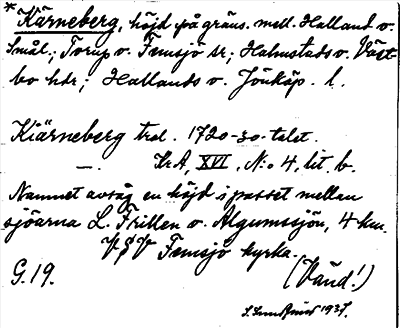 * Kärneberg, höjd på gräns. mell. Halland o.
Smål.; Torup o. Femsjö sr; Halmstads o. Väst-
bo hdr; Hallands o. Jönköp. l.
Kiärneberg trol. 1720-30-talet.
—. KrA, XVI, N:o 4, lit. b.
Namnet avsåg en höjd i passet mellan
sjöarna L. Frillen o. Algumssjön, 4 km.
VSV Femsjö kyrka.
G. 19. (Vänd!)
1937.